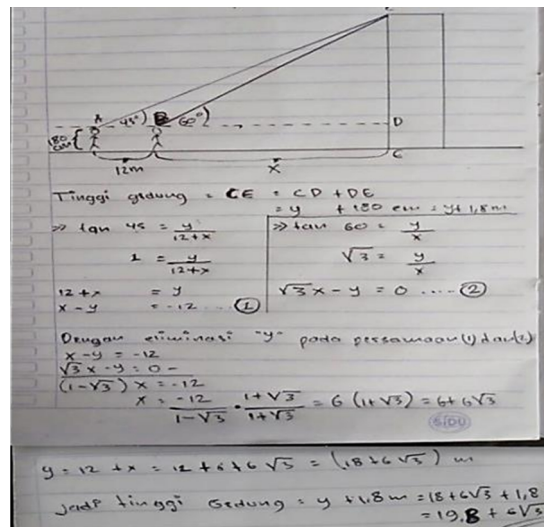 E
A 45°) B (60°)
D
180 cm
C
12m x
Tinggi gedung = CE = CD + DE
= y + 180 cm = y + 1,8 m
>> tan 45 = y/12+x
1 = y/12+x
12+x = y
x - y = -12 ... ①
>> tan 60 = y/x
√3 = y/x
√3 x - y = 0 .... ②
Dengan eliminasi "y" pada persamaan (1) dan (2)
x - y = -12
√3 x - y = 0 -
(1-√3) x = -12
x = -12/1-√3 · 1+√3/1+√3 = 6 (1+√3) = 6+6√3
SIDU
y = 12 + x = 12 + 6 + 6√3 = (18+6√3) m
Jadi tinggi Gedung = y + 1,8 m = 18+6√3 + 1,8
= 19,8 + 6√3